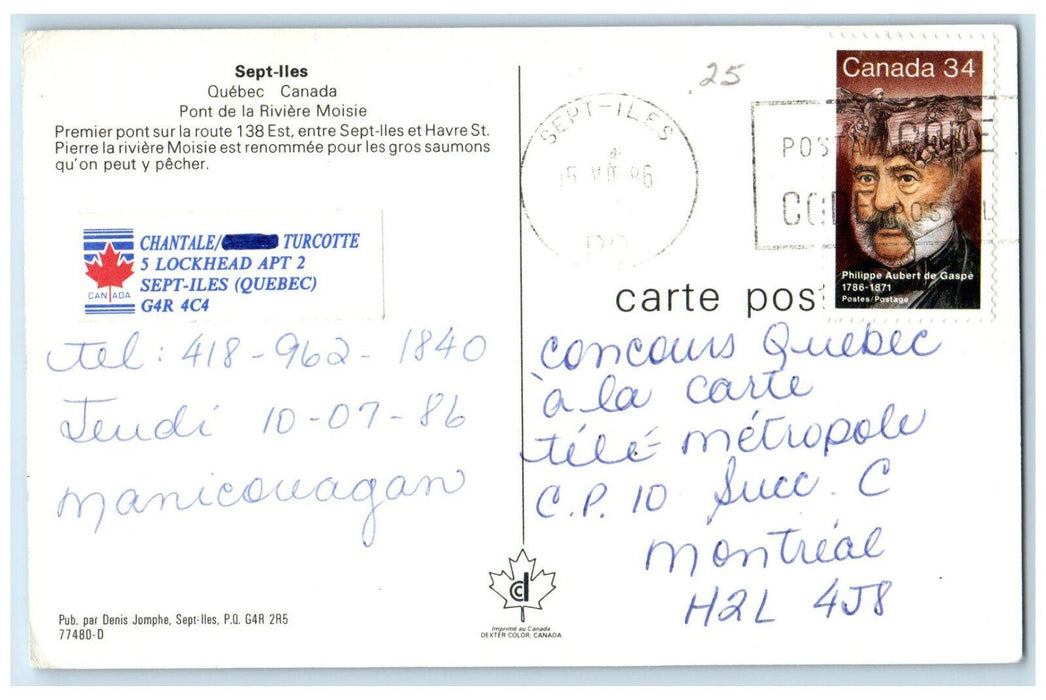 Sept-Iles
Québec Canada
Pont de la Rivière Moisie
Premier pont sur la route 138 Est, entre Sept-Iles et Havre St.
Pierre la rivière Moisie est renommée pour les gros saumons
qu'on peut y pêcher.
CHANTALE/ TURCOTTE
5 LOCKHEAD APT 2
SEPT-ILES (QUEBEC)
G4R 4C4
CANADA
tel: 418-962-1840
Jeudi 10-07-86
manicouagan
Pub. par Denis Jomphe, Sept-Iles, P.Q. G4R 2R5
77480-D
.25
SEPT-ILES
15 VII 86
PQ
POSTAL CODE
CODE POSTAL
Canada 34
Philippe Aubert de Gaspé
1786-1871
Postes/Postage
carte pos
concours Quebec
à la carte
télé-métropole
C.P. 10 Succ. C
Montréal
H2L 4J8
cd
Imprimé au Canada
DEXTER COLOR, CANADA